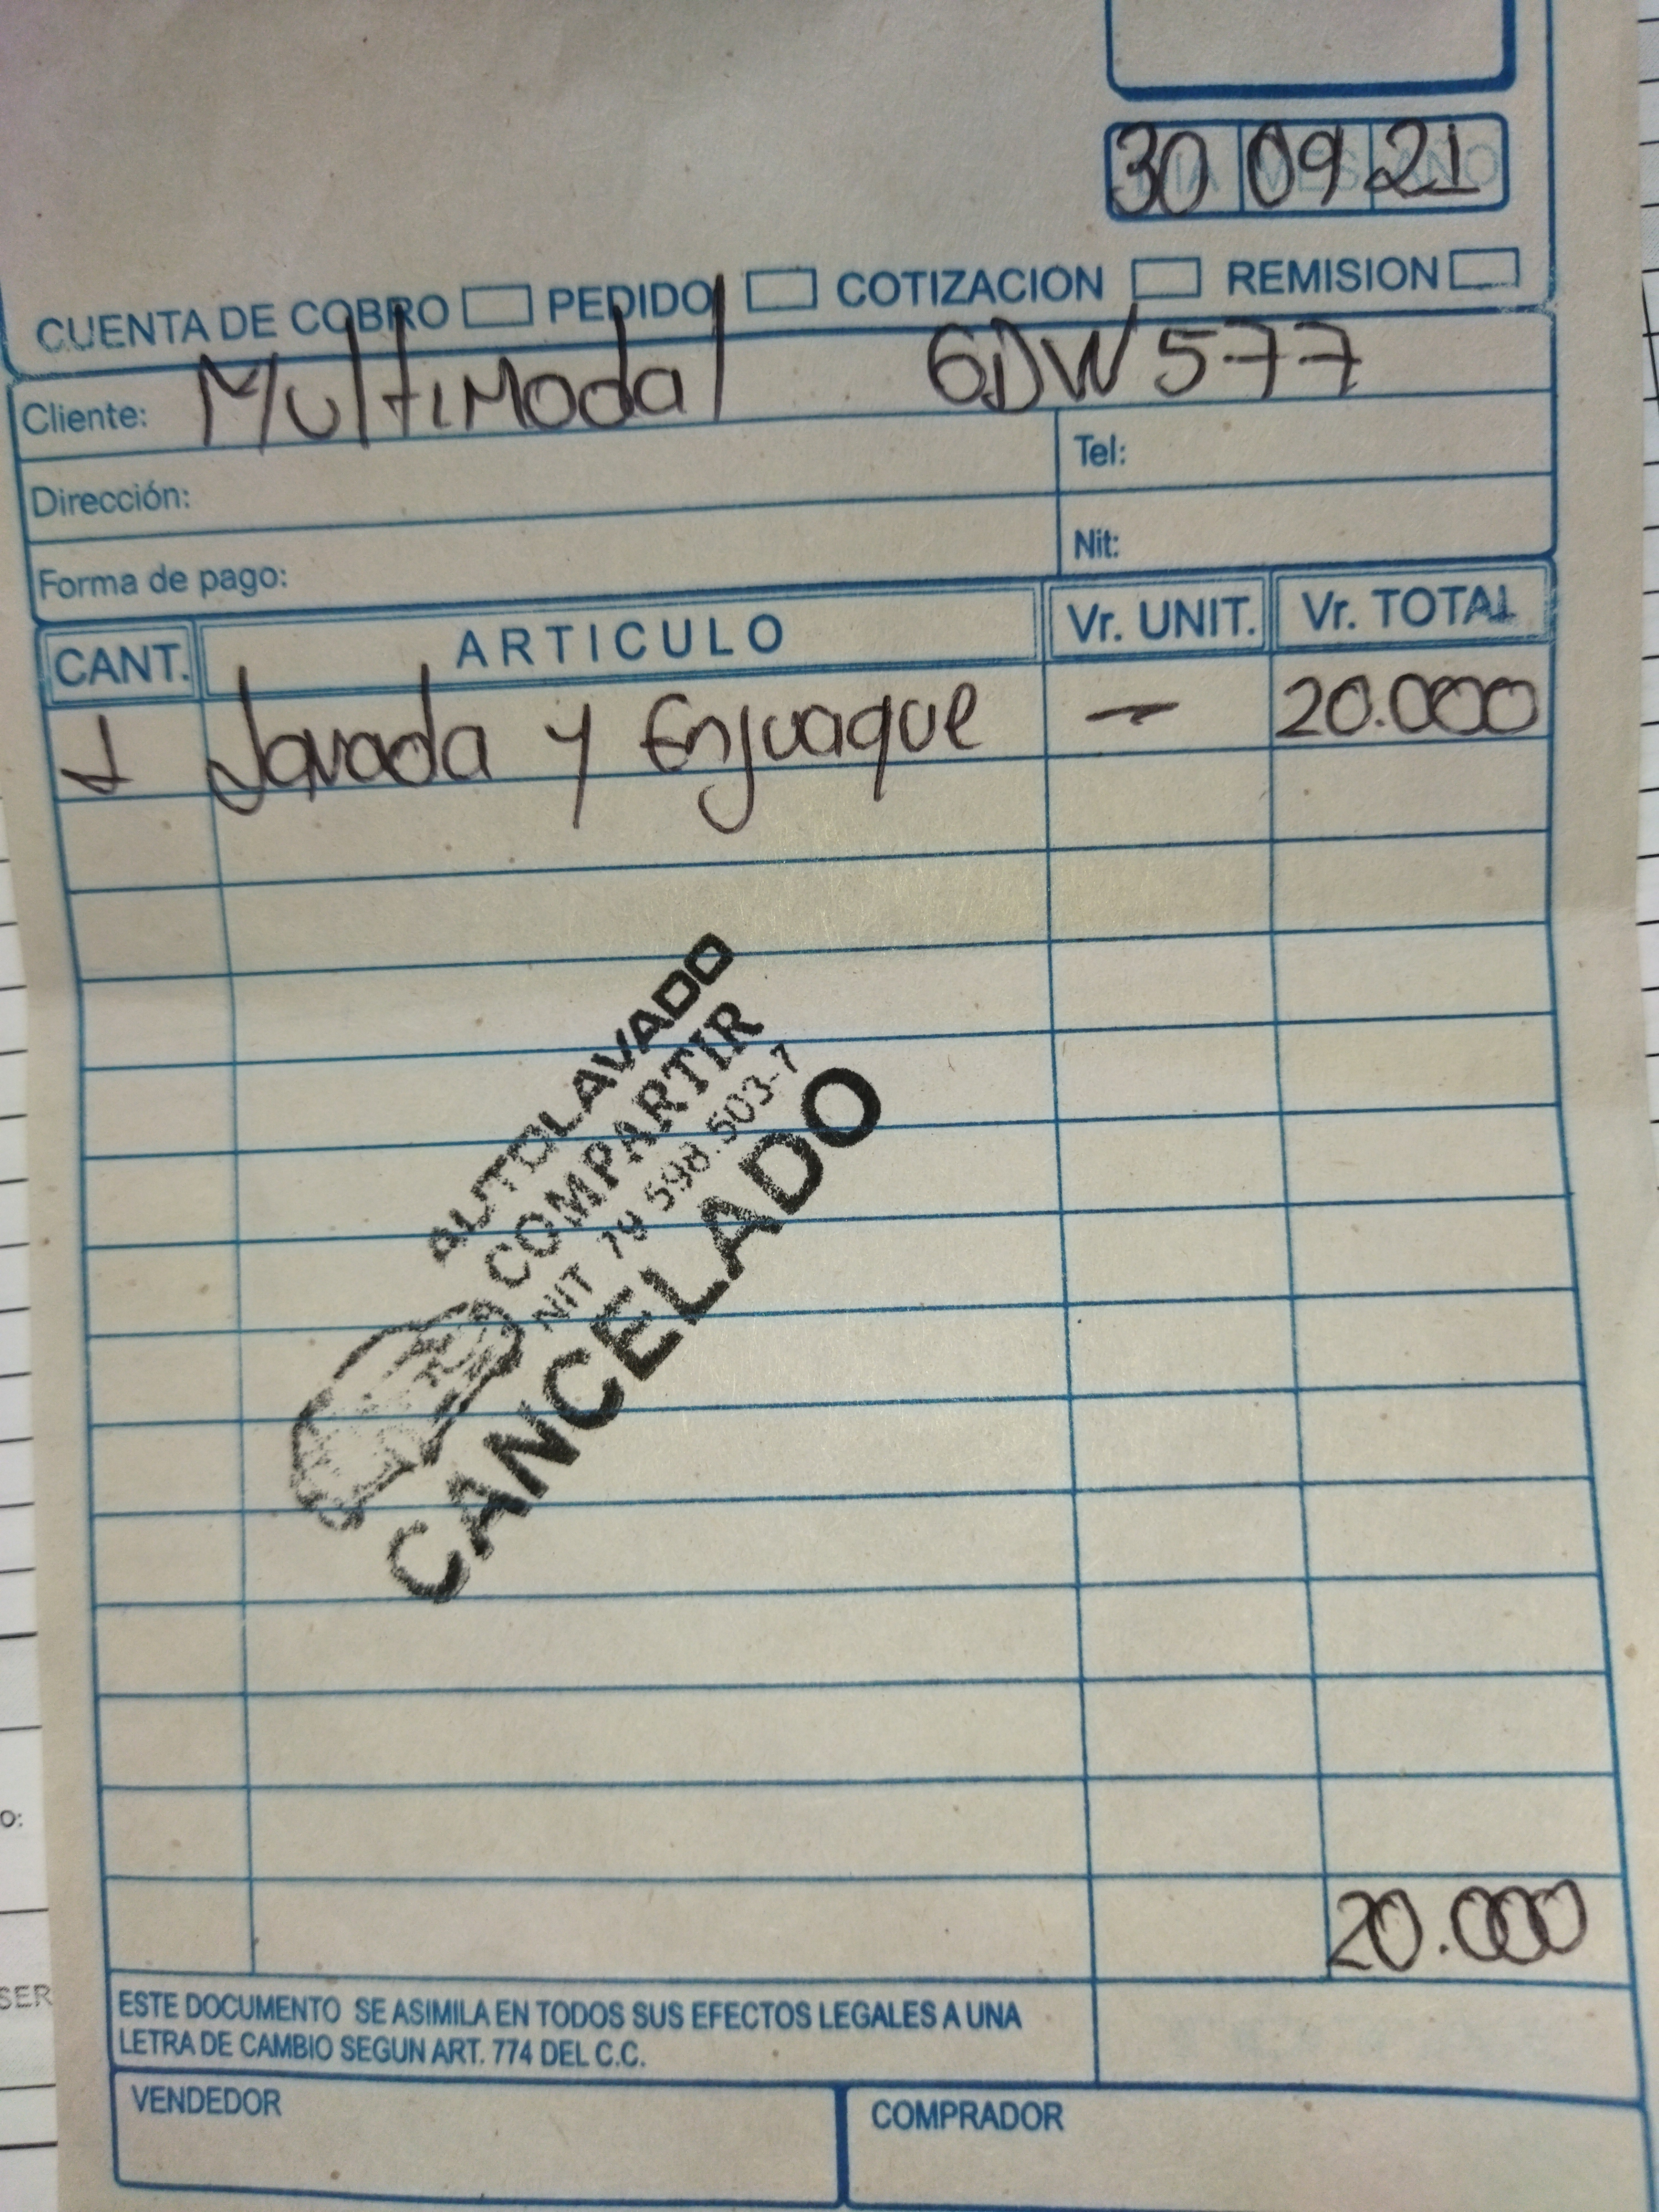 30 09 21
CUENTA DE COBRO PEDIDO COTIZACION REMISION
Cliente: Multimodal GDW577
Dirección: Tel:
Forma de pago: Nit:
CANT. ARTICULO Vr. UNIT. Vr. TOTAL
1 Lavada y Enjuaque — 20.000
AUTOLAVADO
COMPARTIR
NIT 79 598.503-7
CANCELADO
20.000
ESTE DOCUMENTO SE ASIMILA EN TODOS SUS EFECTOS LEGALES A UNA
LETRA DE CAMBIO SEGUN ART. 774 DEL C.C.
VENDEDOR COMPRADOR